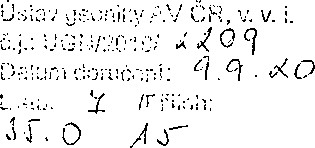 Ústav geoniky AV ČR, v. v. i.
č.j.: UGN/2010/ 2209
Datum doručení: 9.9.20
7 /Příloh:
35.0 15